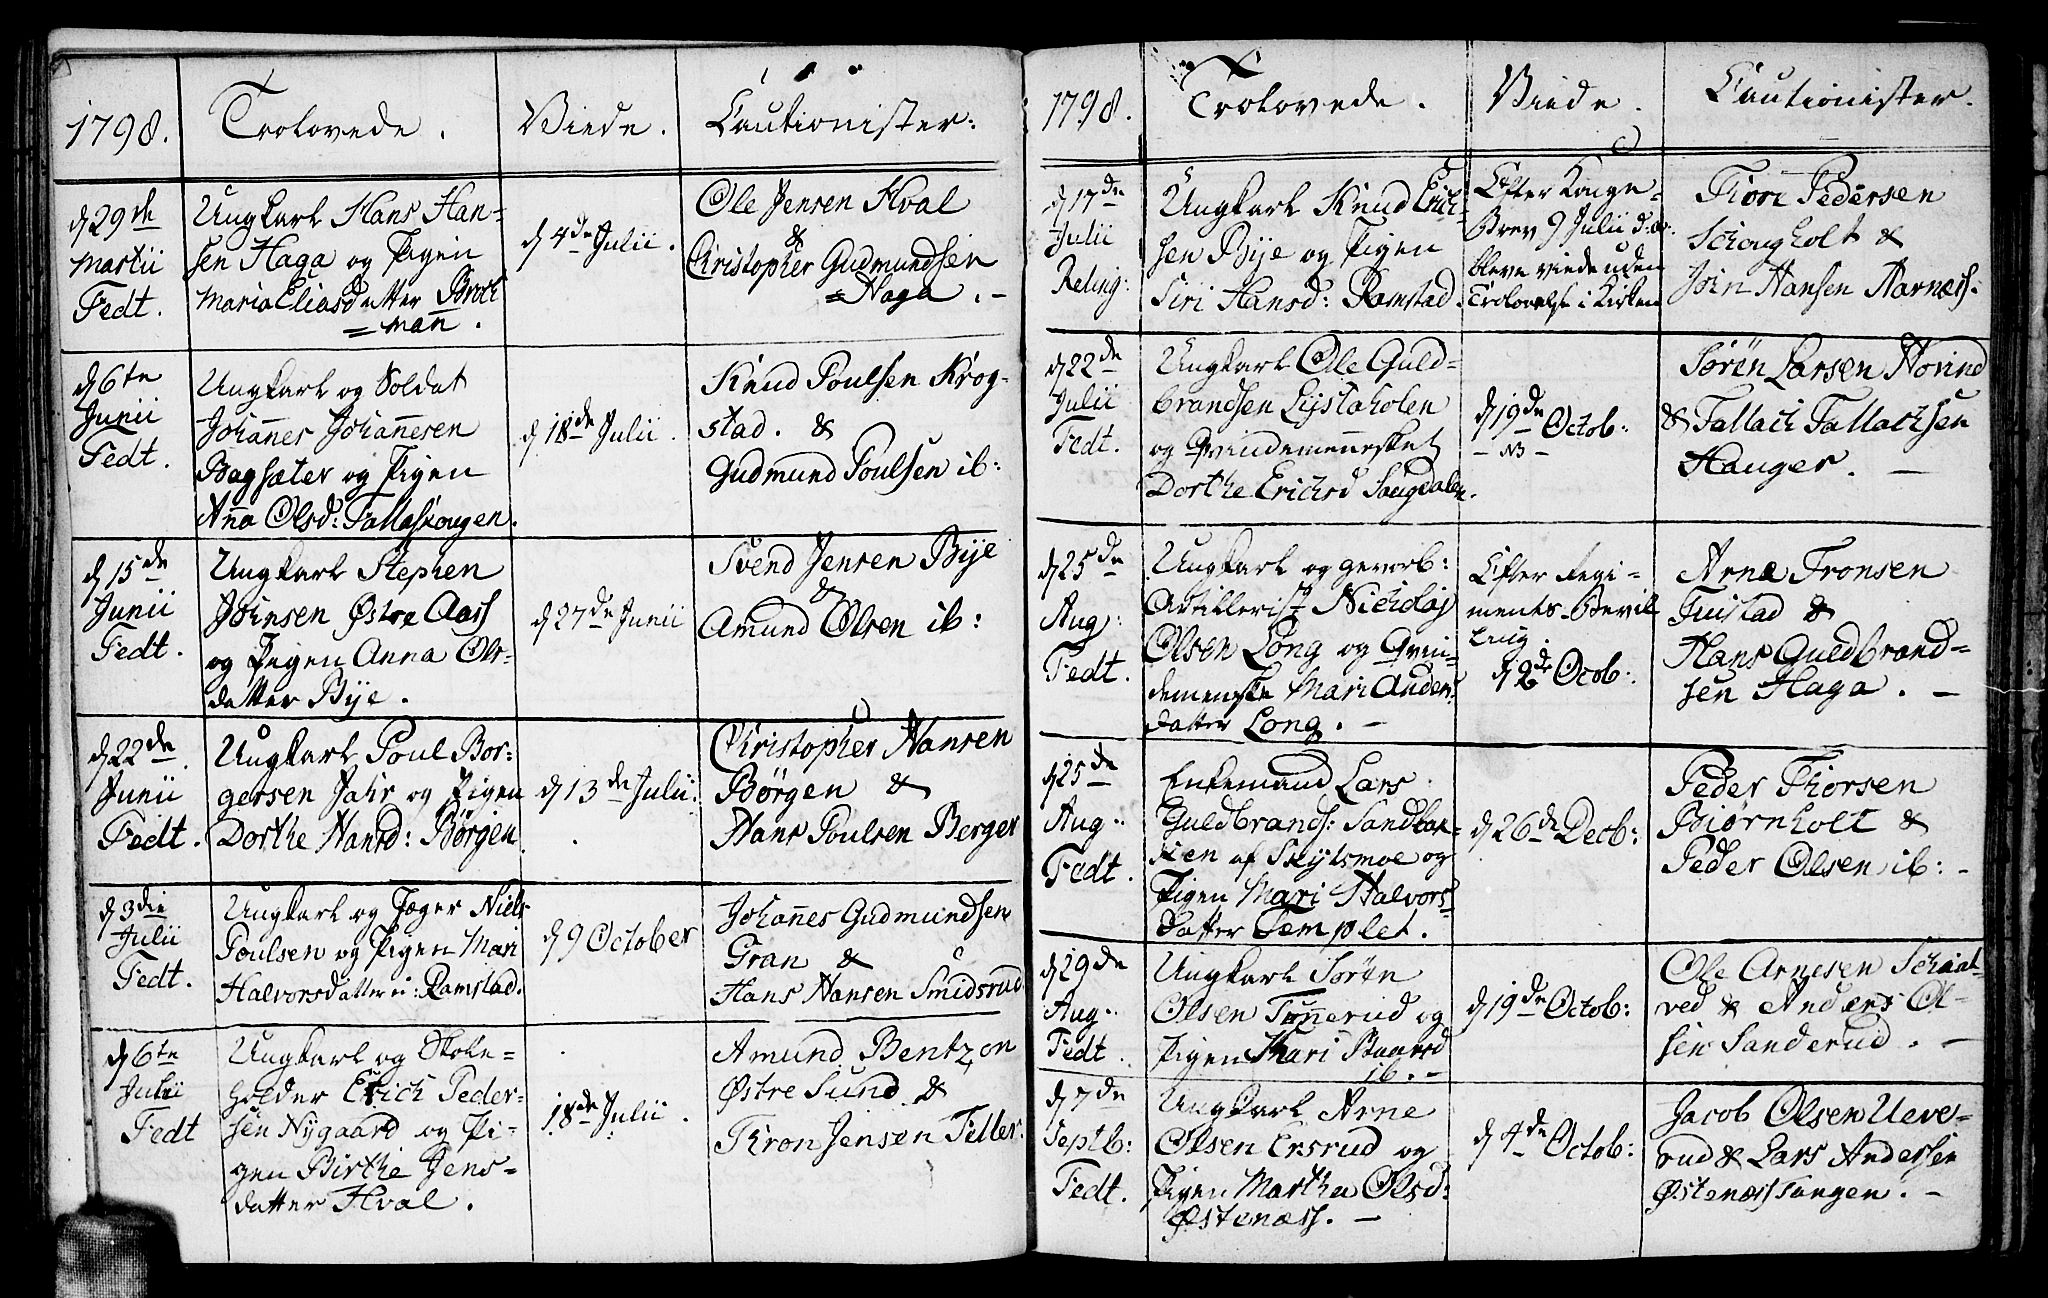 1798.
Trolovede.
Viede.
Cautionister:
d 29de
Martii
Fedt.
Ungkarl Hans Han-
sen Haga og Pigen
Maria Eliasdatter Broch
=man.
d 4de Julii.
Ole Jensen Hval
&
Christopher Gudmundsen
=Haga. -
d 6te
Junii
Fedt.
Ungkarl og Soldat
Johannes Johannesen
Bagsæter og Pigen
Anna Olsd: Fallaskougen.
d 18de Julii.
Knud Poulsen Krog-
stad. &
Gudmund Poulsen ib:
d 15de
Junii
Fedt.
Ungkarl Stephen
Joinsen Østre Aass
og Pigen Anna Ols-
datter Bye.
d 27de Junii
Svend Jensen Bye
&
Amund Olsen ib:
d 22de
Junii
Fedt.
Ungkarl Poul Bor-
gersen Jahr og Pigen
Dorthe Hansd: Børgen.
d 13de Julii.
Christopher Hansen
Børgen &
Hans Poulsen Berger
d 3die
Julii
Fedt.
Ungkarl og Jæger Niels
Poulsen og Pigen Mari
Halvorsdatter ei: Ramstad.
d 9 October
Johannes Gudmundsen
Gran &
Hans Hansen Smidsrud
d 6te
Julii
Fedt
Ungkarl og Skole-
holder Erich Peder-
sen Nygaard og Pi-
gen Birthe Jens-
datter Hval.
18de Julii.
Amund Bentzon
Østre Sund. &
Thron Jensen Feller.
1798.
Trolovede.
Viede.
Cautionister.
d 17de
Julii
Reling:
Ungkarl Knud Erich-
sen Bye og Pigen
Siri Hansd: Ramstad.
Efter Konge-
Brev 9 Julii d: a:
bleve viede uden
Trolovelse i Kirken
Thori Pedersen
Schougholt &
Join Hansen Aarnæss.
d 22de
Julii
Fedt.
Ungkarl Ole Guld-
brandsen Lystaholen
og Qvindemennesket
Dorthe Erichsd Saugdalen.
d 19de Octob:
- NB -
Sørén Larsen Hovind
& Tallach Tallachsen
Hauger. -
d 25de
Aug:
Fedt.
Ungkarl og gevorb:
Artillerist Nicholaj
Olsen Long og Qvin-
demenske Mari Anders
datter Long. -
Efter Regi-
ments-Bevil
ling.
d 2de Octob:
Arne Tronsen
Tuistad &
Hans Guldbrand-
sen Haga. -
d 25de
Aug:
Fedt.
Enkemand Lars
Guldbrands: Sandbak-
ken af Skytsmoe og
Pigen Mari Halvors-
datter Templet.
d 26de Decb:
Peder Thorsen
Biørnholt &
Peder Olsen ib: -
d 29de
Aug:
Fedt.
Ungkarl Sørén
Olsen Tønnerud og
Pigen Mari Baarsd
ib. -
d 19de Octob:
Ole Arnesen Schiat-
ved & Anders Ol-
sen Sanderud. -
d 7de
Septb:
Fedt.
Ungkarl Arne
Olsen Ersrud og
Pigen Martha Olsd:
Østenæss. -
d 4de Octob:
Jacob Olsen Ueve-
rud & Lars Andersen
Østenæssangen. -